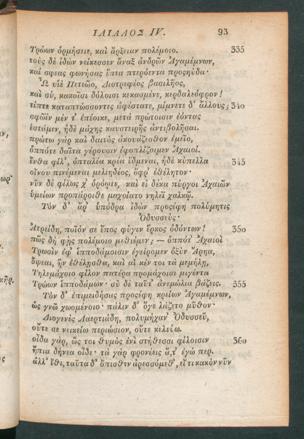 ΙΛΙΑΔΟΣ IV. 93
Τρώων ὁρμήσειε, καὶ ἄρξειαν πολέμοιο. 335
τοὺς δὲ ἰδὼν νείκεσσεν ἄναξ ἀνδρῶν Ἀγαμέμνων,
καί σφεας φωνήσας ἔπεα πτερόεντα προσηύδα·
Ὦ υἱὲ Πετεῶο, Διοτρεφέος βασιλῆος,
καὶ σὺ, κακοῖσι δόλοισι κεκασμένε, κερδαλεόφρον!
τίπτε καταπτώσσοντες ἀφέστατε, μίμνετε δ' ἄλλους; 340
σφῶϊν μέν τ' ἐπέοικε, μετὰ πρώτοισιν ἐόντας
ἑστάμεν, ἠδὲ μάχης καυστειρῆς ἀντιβολῆσαι.
πρώτω γὰρ καὶ δαιτὸς ἀκουάζεσθον ἐμεῖο,
ὁππότε δαῖτα γέρουσιν ἐφοπλίζωμεν Ἀχαιοί.
ἔνθα φίλ', ὀπταλέα κρέα ἔδμεναι, ἠδὲ κύπελλα 345
οἴνου πινέμεναι μελιηδέος, ὄφρ' ἐθέλητον·
νῦν δὲ φίλως χ' ὁρόῳτε, καὶ εἰ δέκα πύργοι Ἀχαιῶν
ὑμείων προπάροιθε μαχοίατο νηλέϊ χαλκῷ.
Τὸν δ' ἄρ' ὑπόδρα ἰδὼν προσέφη πολύμητις
Ὀδυσσεύς·
Ἀτρείδη, ποῖόν σε ἔπος φύγεν ἕρκος ὀδόντων! 350
πῶς δὴ φῂς πολέμοιο μεθιέμεν; — ὁππότ' Ἀχαιοὶ
Τρωσὶν ἐφ' ἱπποδάμοισιν ἐγείρομεν ὀξὺν Ἄρηα,
ὄψεαι, ἢν ἐθέλησθα, καὶ αἴ κέν τοι τὰ μεμήλῃ,
Τηλεμάχοιο φίλον πατέρα προμάχοισι μιγέντα
Τρώων ἱπποδάμων· σὺ δὲ ταῦτ' ἀνεμώλια βάζεις. 355
Τὸν δ' ἐπιμειδήσας προσέφη κρείων Ἀγαμέμνων,
ὡς γνῶ χωομένοιο· πάλιν δ' ὅγε λάζετο μῦθον·
Διογενὲς Λαερτιάδη, πολυμήχαν' Ὀδυσσεῦ,
οὔτε σε νεικείω περιώσιον, οὔτε κελεύω.
οἶδα γάρ, ὥς τοι θυμὸς ἐνὶ στήθεσσι φίλοισιν 360
ἤπια δήνεα οἶδε· τὰ γὰρ φρονέεις ἅ τ' ἐγώ περ.
ἀλλ' ἴθι, ταῦτα δ' ὄπισθεν ἀρεσσόμεθ', εἴ τι κακὸν νῦν